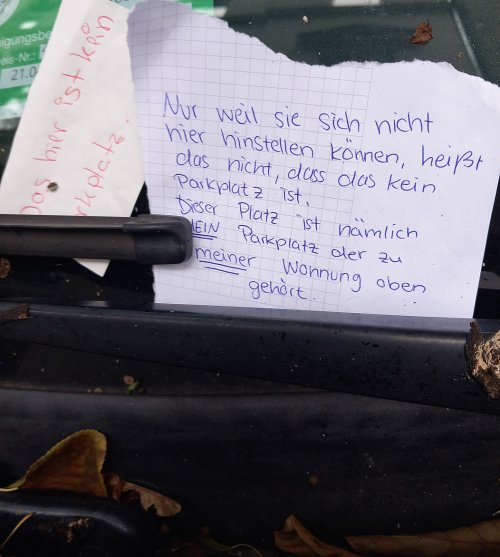 eis-Nr.:
21.0
Das hier ist kein
rkplatz.
Nur weil sie sich nicht
hier hinstellen können, heißt
das nicht, dass das kein
Parkplatz ist.
Dieser Platz ist nämlich
MEIN Parkplatz der zu
meiner Wohnung oben
gehört.